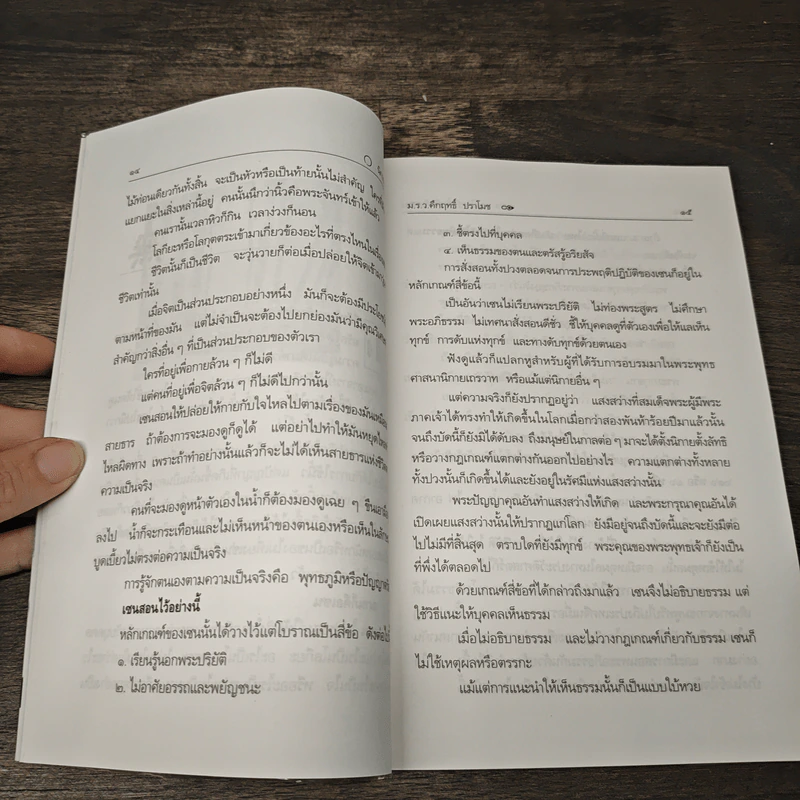 ๑๔
ไม้ท่อนเดียวกันทั้งสิ้น จะเป็นหัวหรือเป็นท้ายนั้นไม่สำคัญ
แยกแยะในสิ่งเหล่านี้อยู่ คนนั้นนึกว่านิ้วคือพระจันทร์เข้าให้แล้ว
คนเรานั้นเวลาหิวก็กิน เวลาง่วงก็นอน
โลกียะหรือโลกุตตระเข้ามาเกี่ยวข้องอะไรที่ตรงไหนใน
ชีวิตนั้นก็เป็นชีวิต จะวุ่นวายก็ต่อเมื่อปล่อยให้จิตเข้า
ชีวิตเท่านั้น
เมื่อจิตเป็นส่วนประกอบอย่างหนึ่ง มันก็จะต้องมีประโยชน์
ตามหน้าที่ของมัน แต่ไม่จำเป็นจะต้องไปยกย่องมันว่ามี
สำคัญกว่าสิ่งอื่น ๆ ที่เป็นส่วนประกอบของตัวเรา
ใครที่อยู่เพื่อกายล้วน ๆ ก็ไม่ดี
แต่คนที่อยู่เพื่อจิตล้วน ๆ ก็ไม่ดีไปกว่านั้น
เซนสอนให้ปล่อยให้กายกับใจไหลไปตามเรื่องของมันเหมือน
สายธาร ถ้าต้องการจะมองดูก็ดูได้ แต่อย่าไปทำให้มันหยุดไหล
ไหลผิดทาง เพราะถ้าทำอย่างนั้นแล้วก็จะไม่ได้เห็นสายธารแห่งชีวิต
ความเป็นจริง
คนที่จะมองดูหน้าตัวเองในน้ำก็ต้องมองดูเฉย ๆ ขืนเอามือ
ลงไป น้ำก็จะกระเทือนและไม่เห็นหน้าของตนเองหรือเห็นในลักษ
บูดเบี้ยวไม่ตรงต่อความเป็นจริง
การรู้จักตนเองตามความเป็นจริงคือ พุทธภูมิหรือปัญญา
เซนสอนไว้อย่างนี้
หลักเกณฑ์ของเซนนั้นได้วางไว้แต่โบราณเป็นสี่ข้อ ดังต่อไป
๑. เรียนรู้นอกพระปริยัติ
๒. ไม่อาศัยอรรถและพยัญชนะ
ม.ร.ว.คึกฤทธิ์ ปราโมช
๑๕
๓. ชี้ตรงไปที่บุคคล
๔. เห็นธรรมของตนและตรัสรู้อริยสัจ
การสั่งสอนทั้งปวงตลอดจนการประพฤติปฏิบัติของเซนก็อยู่ใน
หลักเกณฑ์สี่ข้อนี้
เป็นอันว่าเซนไม่เรียนพระปริยัติ ไม่ท่องพระสูตร ไม่ศึกษา
พระอภิธรรม ไม่เทศนาสั่งสอนดีชั่ว ชี้ให้บุคคลดูที่ตัวเองเพื่อให้แลเห็น
ทุกข์ การดับแห่งทุกข์ และทางดับทุกข์ด้วยตนเอง
ฟังดูแล้วก็แปลกหูสำหรับผู้ที่ได้รับการอบรมมาในพระพุทธ
ศาสนานิกายเถรวาท หรือแม้แต่นิกายอื่น ๆ
แต่ความจริงก็ยังปรากฏอยู่ว่า แสงสว่างที่สมเด็จพระผู้มีพระ
ภาคเจ้าได้ทรงทำให้เกิดขึ้นในโลกเมื่อกว่าสองพันห้าร้อยปีมาแล้วนั้น
จนถึงบัดนี้ก็ยังมิได้ดับลง ถึงมนุษย์ในกาลต่อๆ มาจะได้ตั้งนิกายตั้งลัทธิ
หรือวางกฎเกณฑ์แตกต่างกันออกไปอย่างไร ความแตกต่างทั้งหลาย
ทั้งปวงนั้นก็เกิดขึ้นได้และยังอยู่ในรัศมีแห่งแสงสว่างนั้น
พระปัญญาคุณอันทำแสงสว่างให้เกิด และพระกรุณาคุณอันได้
เปิดเผยแสงสว่างนั้นให้ปรากฏแก่โลก ยังมีอยู่จนถึงบัดนี้และจะยังมีต่อ
ไปไม่มีที่สิ้นสุด ตราบใดที่ยังมีทุกข์ พระคุณของพระพุทธเจ้าก็ยังเป็น
ที่พึ่งได้ตลอดไป
ด้วยเกณฑ์สี่ข้อที่ได้กล่าวถึงมาแล้ว เซนจึงไม่อธิบายธรรม แต่
ใช้วิธีแนะให้บุคคลเห็นธรรม
เมื่อไม่อธิบายธรรม และไม่วางกฎเกณฑ์เกี่ยวกับธรรม เซนก็
ไม่ใช้เหตุผลหรือตรรกะ
แม้แต่การแนะนำให้เห็นธรรมนั้นก็เป็นแบบใบ้หวย